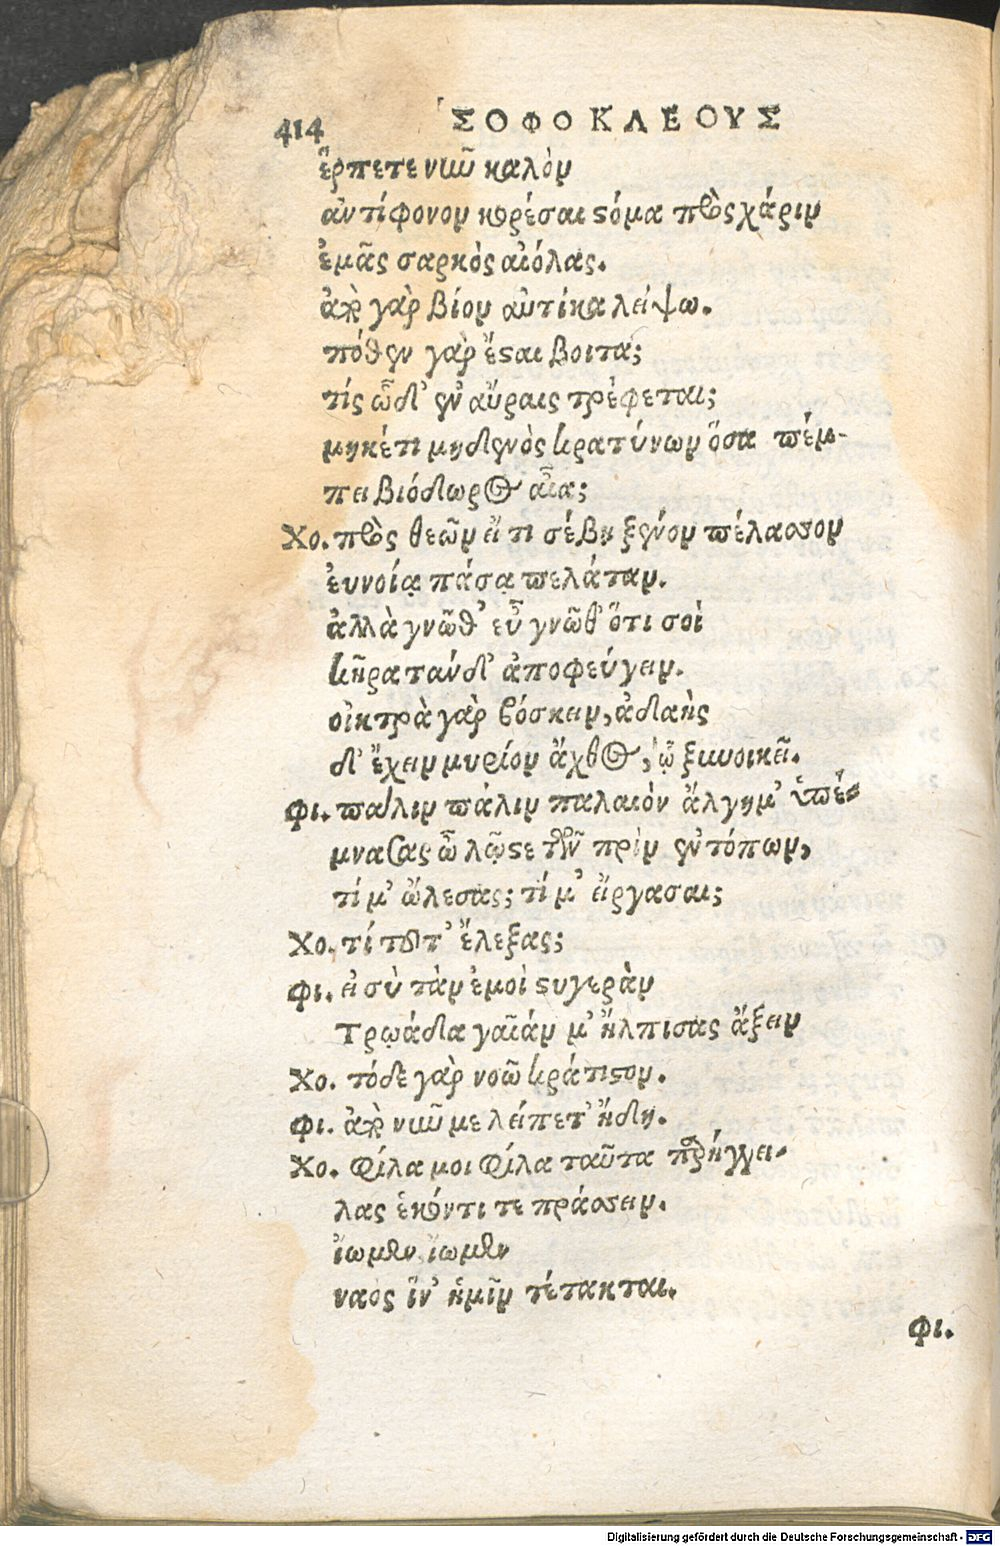 414 ΣΟΦΟΚΛΕΟΥΣ
ἕρπετε νῦν καλὸν
ἀντίφονον κορέσαι στόμα πρὸς χάριν
ἐμᾶς σαρκὸς αἰόλας.
ἀπὸ γὰρ βίον αὐτίκα λείψω.
πόθεν γὰρ ἔσται βοιτα;
τίς ὧδ' ἐν αὔραις τρέφεται;
μηκέτι μηδενὸς κρατύνων ὅσα πέμ-
πει βιόδωρος αἶα;
Χο. πρὸς θεῶν εἴ τι σέβῃ ξένον πέλασσον
ἐυνοίᾳ πάσᾳ πελάταν.
ἀλλὰ γνῶθ' εὖ γνῶθ' ὅτι σοὶ
κῆρα τάνδ' ἀποφεύγειν.
οἰκτρὰ γὰρ βόσκειν, ἀδαὴς
δ' ἔχειν μυρίον ἄχθος, ᾧ ξυνοικεῖ.
Φι. πάλιν πάλιν παλαιὸν ἄλγημ' ὑπέ-
μνασας ὦ λῷστε τῶν πρὶν ἐντόπων,
τί μ' ὤλεσας; τί μ' εἴργασαι;
Χο. τί τοῦτ' ἔλεξας;
Φι. εἰ σὺ τὰν ἐμοὶ στυγερὰν
Τρῳάδα γαῖάν μ' ἤλπισας ἄξειν
Χο. τόδε γὰρ νοῶ κράτιστον.
Φι. ἀπὸ νῦν με λείπετ' ἤδη.
Χο. φίλα μοι φίλα ταῦτα παρήγγει-
λας ἑκόντι τε πράσσειν.
ἴωμεν ἴωμεν
ναὸς ἵν' ἡμῖν τέτακται.
Φι.
Digitalisierung gefördert durch die Deutsche Forschungsgemeinschaft - DFG